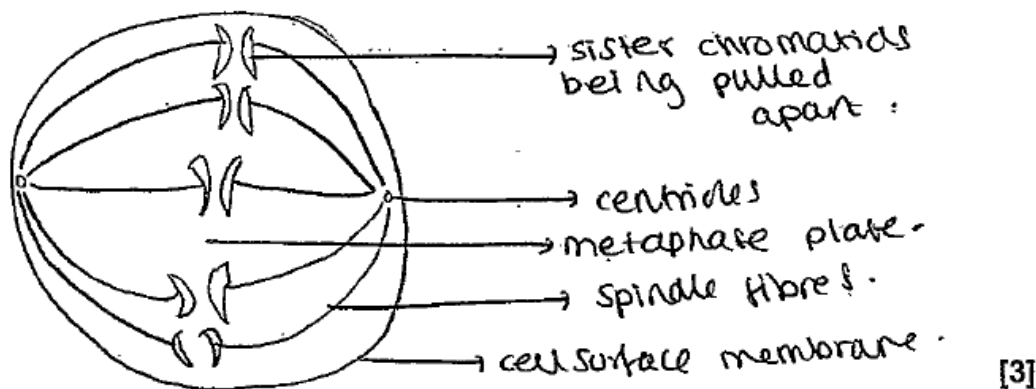 sister chromatids
being pulled
apart.
centrioles
metaphase plate.
spindle fibres.
cell surface membrane.
[3]